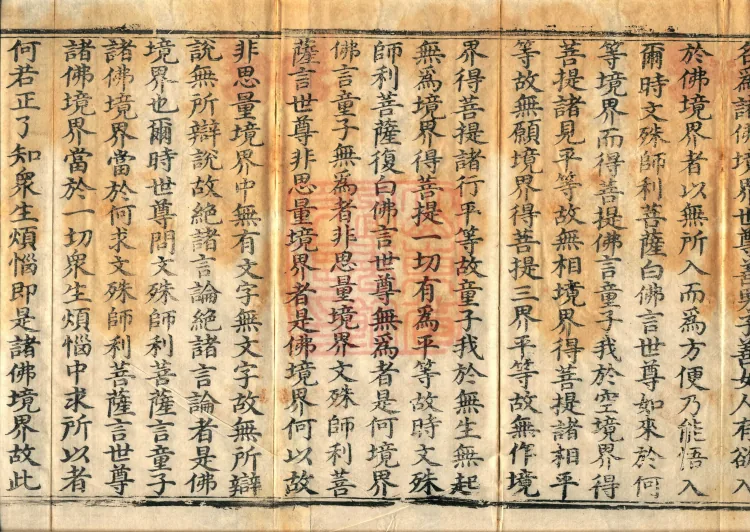 名爲諸佛境界世尊善男子善女人有欲入
於佛境界者以無所入而爲方便乃能悟入
爾時文殊師利菩薩白佛言世尊如來於何
等境界而得菩提佛言童子我於空境界得
菩提諸見平等故無相境界得菩提諸相平
等故無願境界得菩提三界平等故無作境
界得菩提諸行平等故童子我於無生無起
無爲境界得菩提一切有爲平等故時文殊
師利菩薩復白佛言世尊無爲者是何境界
佛言童子無爲者非思量境界文殊師利菩
薩言世尊非思量境界者是佛境界何以故
非思量境界中無有文字無文字故無所辯
說無所辯說故絕諸言論絕諸言論者是佛
境界也爾時世尊問文殊師利菩薩言童子
諸佛境界當於何求文殊師利菩薩言世尊
諸佛境界當於一切衆生煩惱中求所以者
何若正了知衆生煩惱即是諸佛境界故此